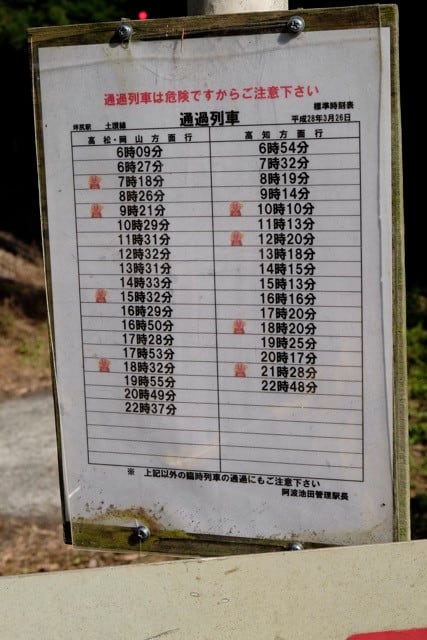 通過列車は危険ですからご注意下さい
標準時刻表
坪尻駅 土讃線 通過列車 平成28年3月26日
高松・岡山方面行 高知方面行
6時09分 6時54分
6時27分 7時32分
7時18分 8時19分
8時26分 9時14分
9時21分 10時10分
10時29分 11時13分
11時31分 12時20分
12時32分 13時18分
13時31分 14時15分
14時33分 15時13分
15時32分 16時16分
16時29分 17時20分
16時50分 18時20分
17時28分 19時25分
17時53分 20時17分
18時32分 21時28分
19時55分 22時48分
20時49分
22時37分
※ 上記以外の臨時列車の通過にもご注意下さい
阿波池田管理駅長